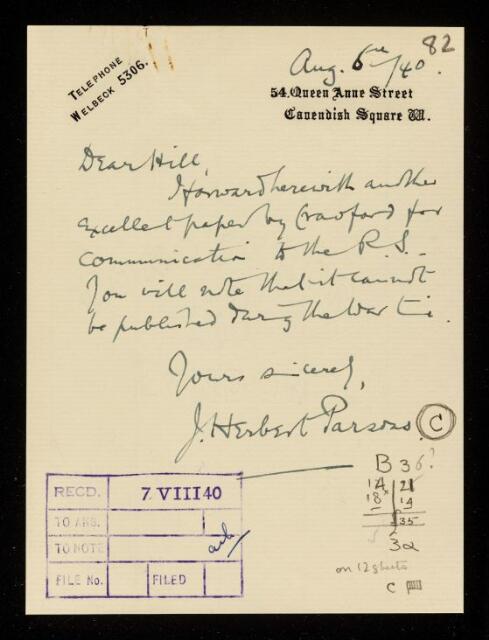 82
Aug. 6th/40.
TELEPHONE
WELBECK 5306.
54. Queen Anne Street
Cavendish Square W.
Dear Hill,
I forward herewith another
excellent paper by Crawford for
communication to the R.S.
You will note that it cannot
be published during the War time.
Yours sincerely,
J. Herbert Parsons.
C
B 36?
14 21
18 14
35
32
on 12 sheets
C
RECD. 7 VIII 40
TO ANS.
TO NOTE
FILE No. FILED